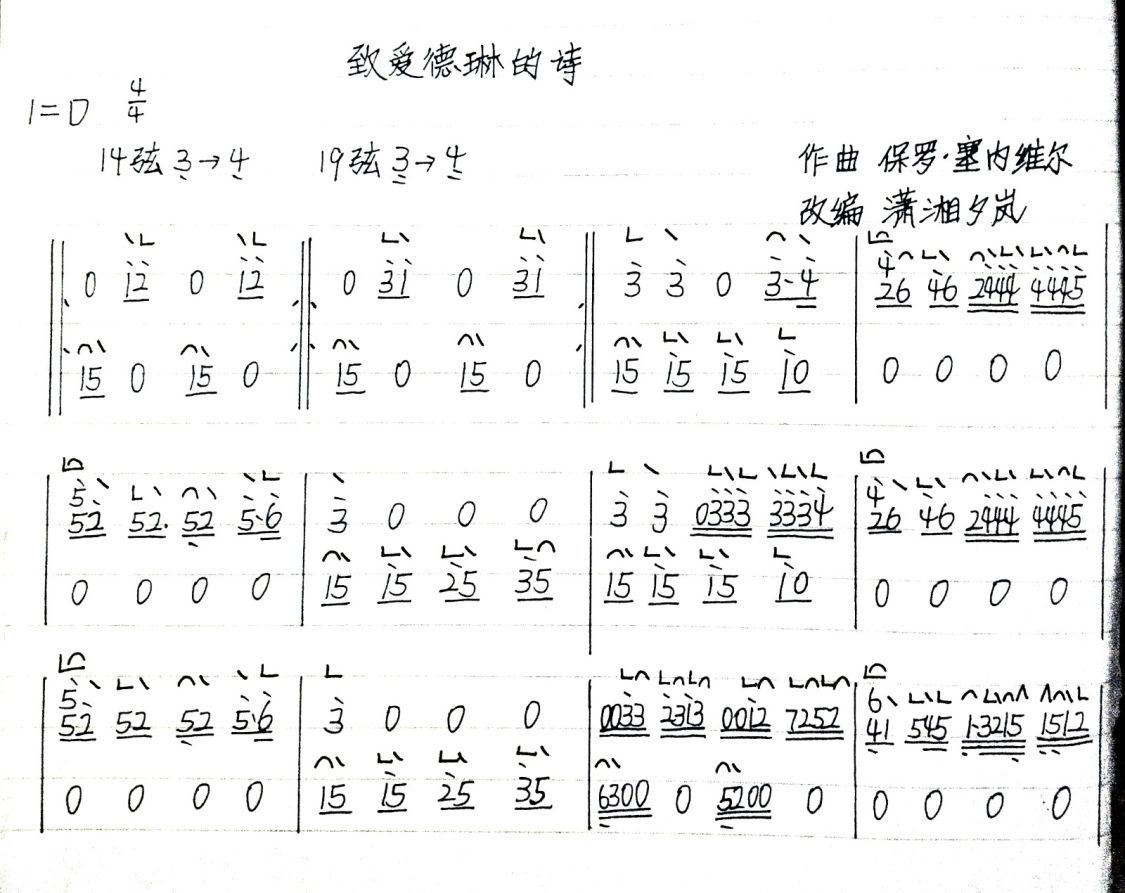 致爱德琳的诗
1=D 4/4
14弦 3→4 19弦 3→4
作曲 保罗·塞内维尔
改编 潇湘夕岚
0 12 0 12 0 31 0 31 3 3 0 3·4 4 26 46 2444 4445
15 0 15 0 15 0 15 0 15 15 15 10 0 0 0 0
5 52 52· 52 5·6 3 0 0 0 3 3 0333 3334 4 26 46 2444 4445
0 0 0 0 15 15 25 35 15 15 15 10 0 0 0 0
5 52 52 52 5·6 3 0 0 0 0033 2313 0012 7252 6 41 545 1·3215 1512
0 0 0 0 15 15 25 35 6300 0 5200 0 0 0 0 0